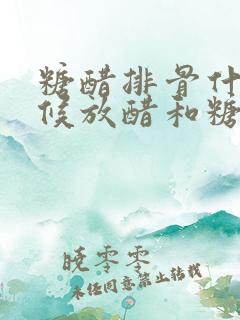 糖醋排骨什
候放醋和糖
晓零零
未经同意禁止转载